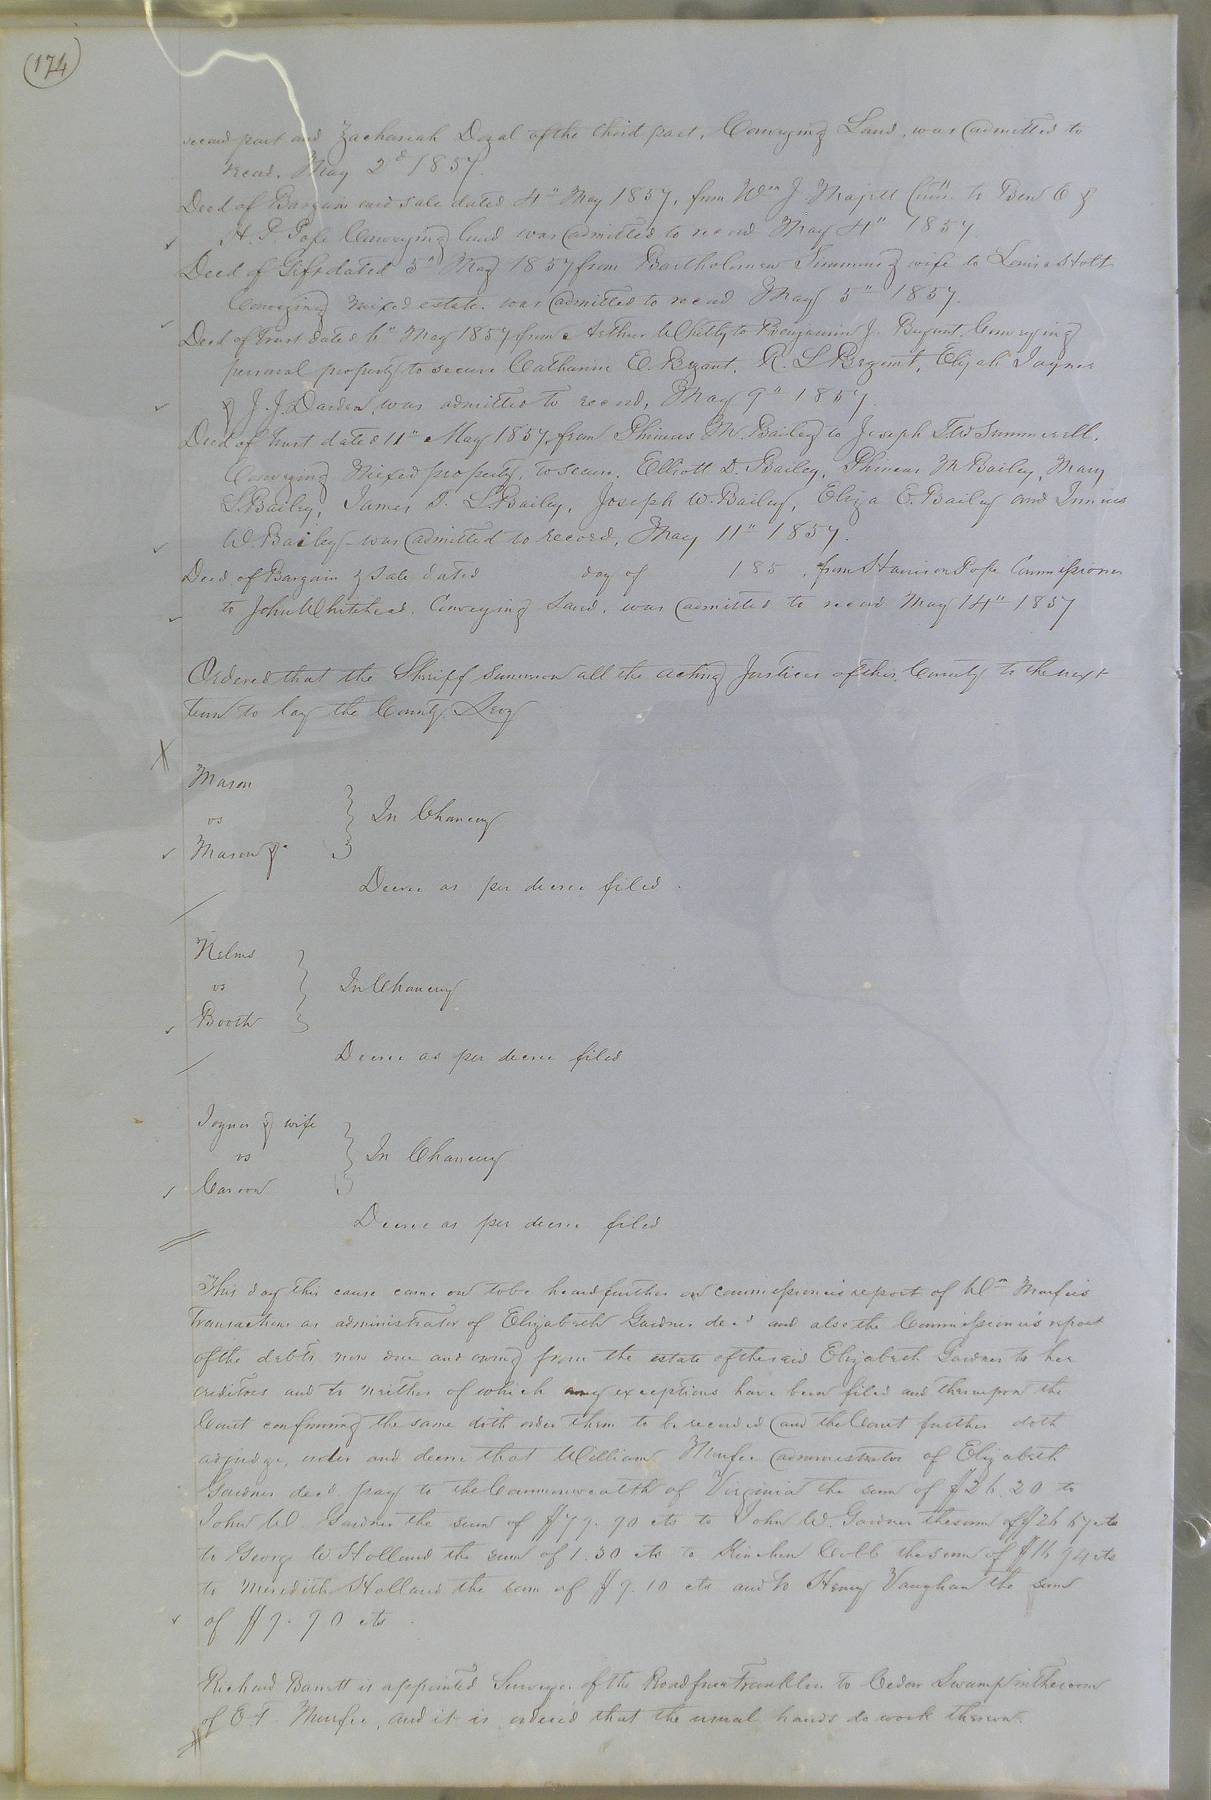 (174)
second part and Zachariah Doyal of the third part, Conveying Land, was admitted to
record. May 2d 1857.
Deed of Bargain and sale dated 4" May 1857, from Wm J. Majett Comr. to Ben C &
H. P. Pope Conveying land was admitted to record May 4" 1857.
Deed of Gift dated 5" May 1857 from Bartholomew Simmons & wife to Louisa Holt
Conveying mixed estate. was admitted to record May 5" 1857.
Deed of trust dated 6" May 1857 from Arthur Whitly to Benjamin J. Bryant, Conveying
personal property to secure Catharine E. Bryant, R. L Bryant, Elijah Joyner
& J. J. Darden, was admitted to record, May 9" 1857.
Deed of trust dated 11" May 1857, from Phineas M. Bailey to Joseph Summerell,
Conveying mixed property, to secure, Elliott D. Bailey, Phineas M Bailey, Mary
S. Bailey, James L. Bailey, Joseph W. Bailey, Eliza E. Bailey and Junius
W. Bailey was admitted to record, May 11" 1857.
Deed of Bargain & Sale dated day of 185 , from Harrison Pope Commissioner
to John Whitehead, Conveying Land, was admitted to record May 14" 1857
Ordered that the Sheriff summon all the acting Justices of this County to the next
term to lay the County Levy
Mason
vs } In Chancery
Mason &c
Decree as per decree filed.
Nelms
vs } In Chancery
Booth
Decree as per decree filed
Joyner & wife
vs } In Chancery
Carson
Decree as per decree filed
This day this cause came on to be heard further on commissioner's report of Wm Murfee's
Transactions as administrator of Elizabeth Gardner decd and also the Commissioner's report
of the debts now due and owing from the estate of the said Elizabeth Gardner to her
creditors and to neither of which any exceptions have been filed and thereupon the
Court confirming the same doth order them to be recorded and the Court further doth
adjudge, order and decree that William Murfee administrator of Elizabeth
Gardner decd. pay to the Commonwealth of Virginia the sum of $26.20 to
John W. Gardner the sum of $79.90 cts to John W. Gardner the sum of $26 67 cts
to George W Holland the sum of 1.30 cts to Kinchen Cobb the sum of $16 94 cts
to Meredith Holland the sum of $9.10 cts and to Henry Vaughan the sum
of $9.90 cts.
Richard Barrett is appointed Surveyor of the Road from Franklin to Cedar Swamp in the room
of E T. Murfee, and it is ordered that the usual hands do work thereon.